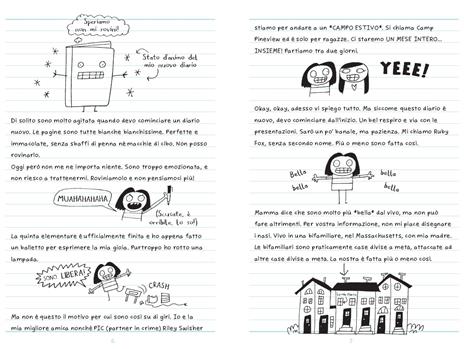 Speriamo
non mi rovini!
Stato d'animo del
mio nuovo diario
Di solito sono molto agitata quando devo cominciare un diario
nuovo. Le pagine sono tutte bianche bianchissime. Perfette e
immacolate, senza sbaffi di penna né macchie di cibo. Non posso
rovinarlo.
Oggi però non me ne importa niente. Sono troppo emozionata, e non
riesco a trattenermi. Roviniamolo e non pensiamoci più!
MUAHAHAHAHA
(Scusate, è
orribile, lo so!)
La quinta elementare è ufficialmente finita e ho appena fatto
un balletto per esprimere la mia gioia. Purtroppo ho rotto una
lampada.
SONO LIBERA!
CRASH
Ma non è questo il motivo per cui sono così su di giri. Io e la
mia migliore amica nonché PIC (partner in crime) Riley Swisher
6
stiamo per andare a un *CAMPO ESTIVO*. Si chiama Camp
Pineview ed è solo per ragazze. Ci staremo UN MESE INTERO...
INSIEME! Partiamo tra due giorni.
YEEE!
Okay, okay, adesso vi spiego tutto. Ma siccome questo diario è
nuovo, devo cominciare dall'inizio. Un bel respiro e via con le
presentazioni. Sarò un po' banale, ma pazienza. Mi chiamo Ruby
Fox, senza secondo nome. Più o meno sono fatta così.
Bella
Bella
bella
bella
Mamma dice che sono molto più *bella* dal vivo, ma non può
fare altrimenti. Per vostra informazione, non mi piace disegnare
i nasi. Vivo in una bifamiliare, nel Massachusetts, con mia madre.
Le bifamiliari sono praticamente case divise a metà, attaccate ad
altre case divise a metà. La nostra è fatta più o meno così.
7